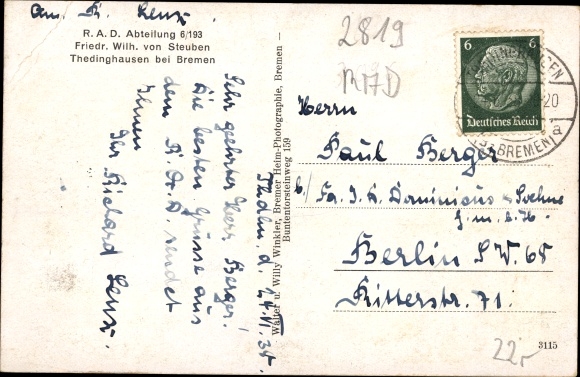 R. Lenz.
R. A. D. Abteilung 6/193
Friedr. Wilh. von Steuben
Thedinghausen bei Bremen
Thedhn. d. 24. VI. 35.
Sehr geehrter Herr Berger!
Die besten Grüsse aus
dem R. A. D. sendet
Ihnen
Ihr Richard Lenz.
Walter u. Willy Winkler, Bremer Heim-Photographie, Bremen –
Buntentorsteinweg 159
2819
RAD
6 6
Deutsches Reich
BREMEN
a
Herrn
Paul Berger
b/ Fa. J. A. Dominicus & Soehne
G. m. b. H.
Berlin S.W. 68
Ritterstr. 71.
22,-
3115